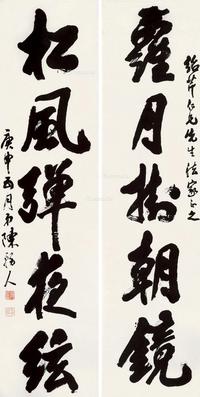 紹芹仁兄先生法家正之
蘿月掛朝鏡
松風彈夜絃
庚申
月
陳
人